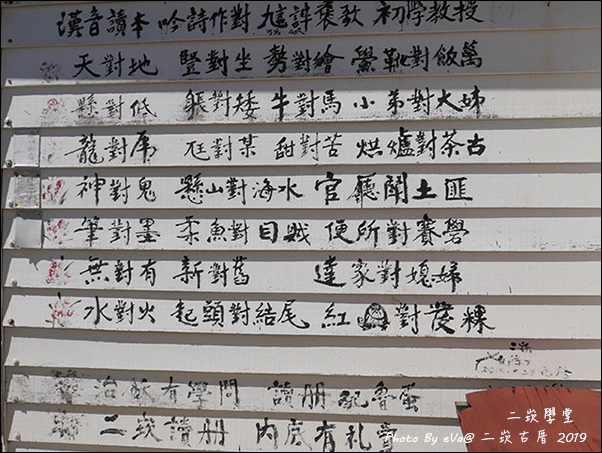 漢音讀本 吟詩作對 褒歌 初學教授
天對地 豎對坐 勢對繪 靴對飯萬
懸對低 躼對矮 牛對馬 小弟對大姊
龍對虎 尪對某 甜對苦 烘爐對茶古
神對鬼 懸山對海水 官廳對土匪
筆對墨 柔魚對目賊 便所對賽礐
無對有 新對舊 達家對媳婦
水對火 起頭對結尾 紅 對發粿
有學問 讀册配魯蛋
二崁讀册 內底有礼
二崁學堂
Photo By eVa@ 二崁古厝 2019